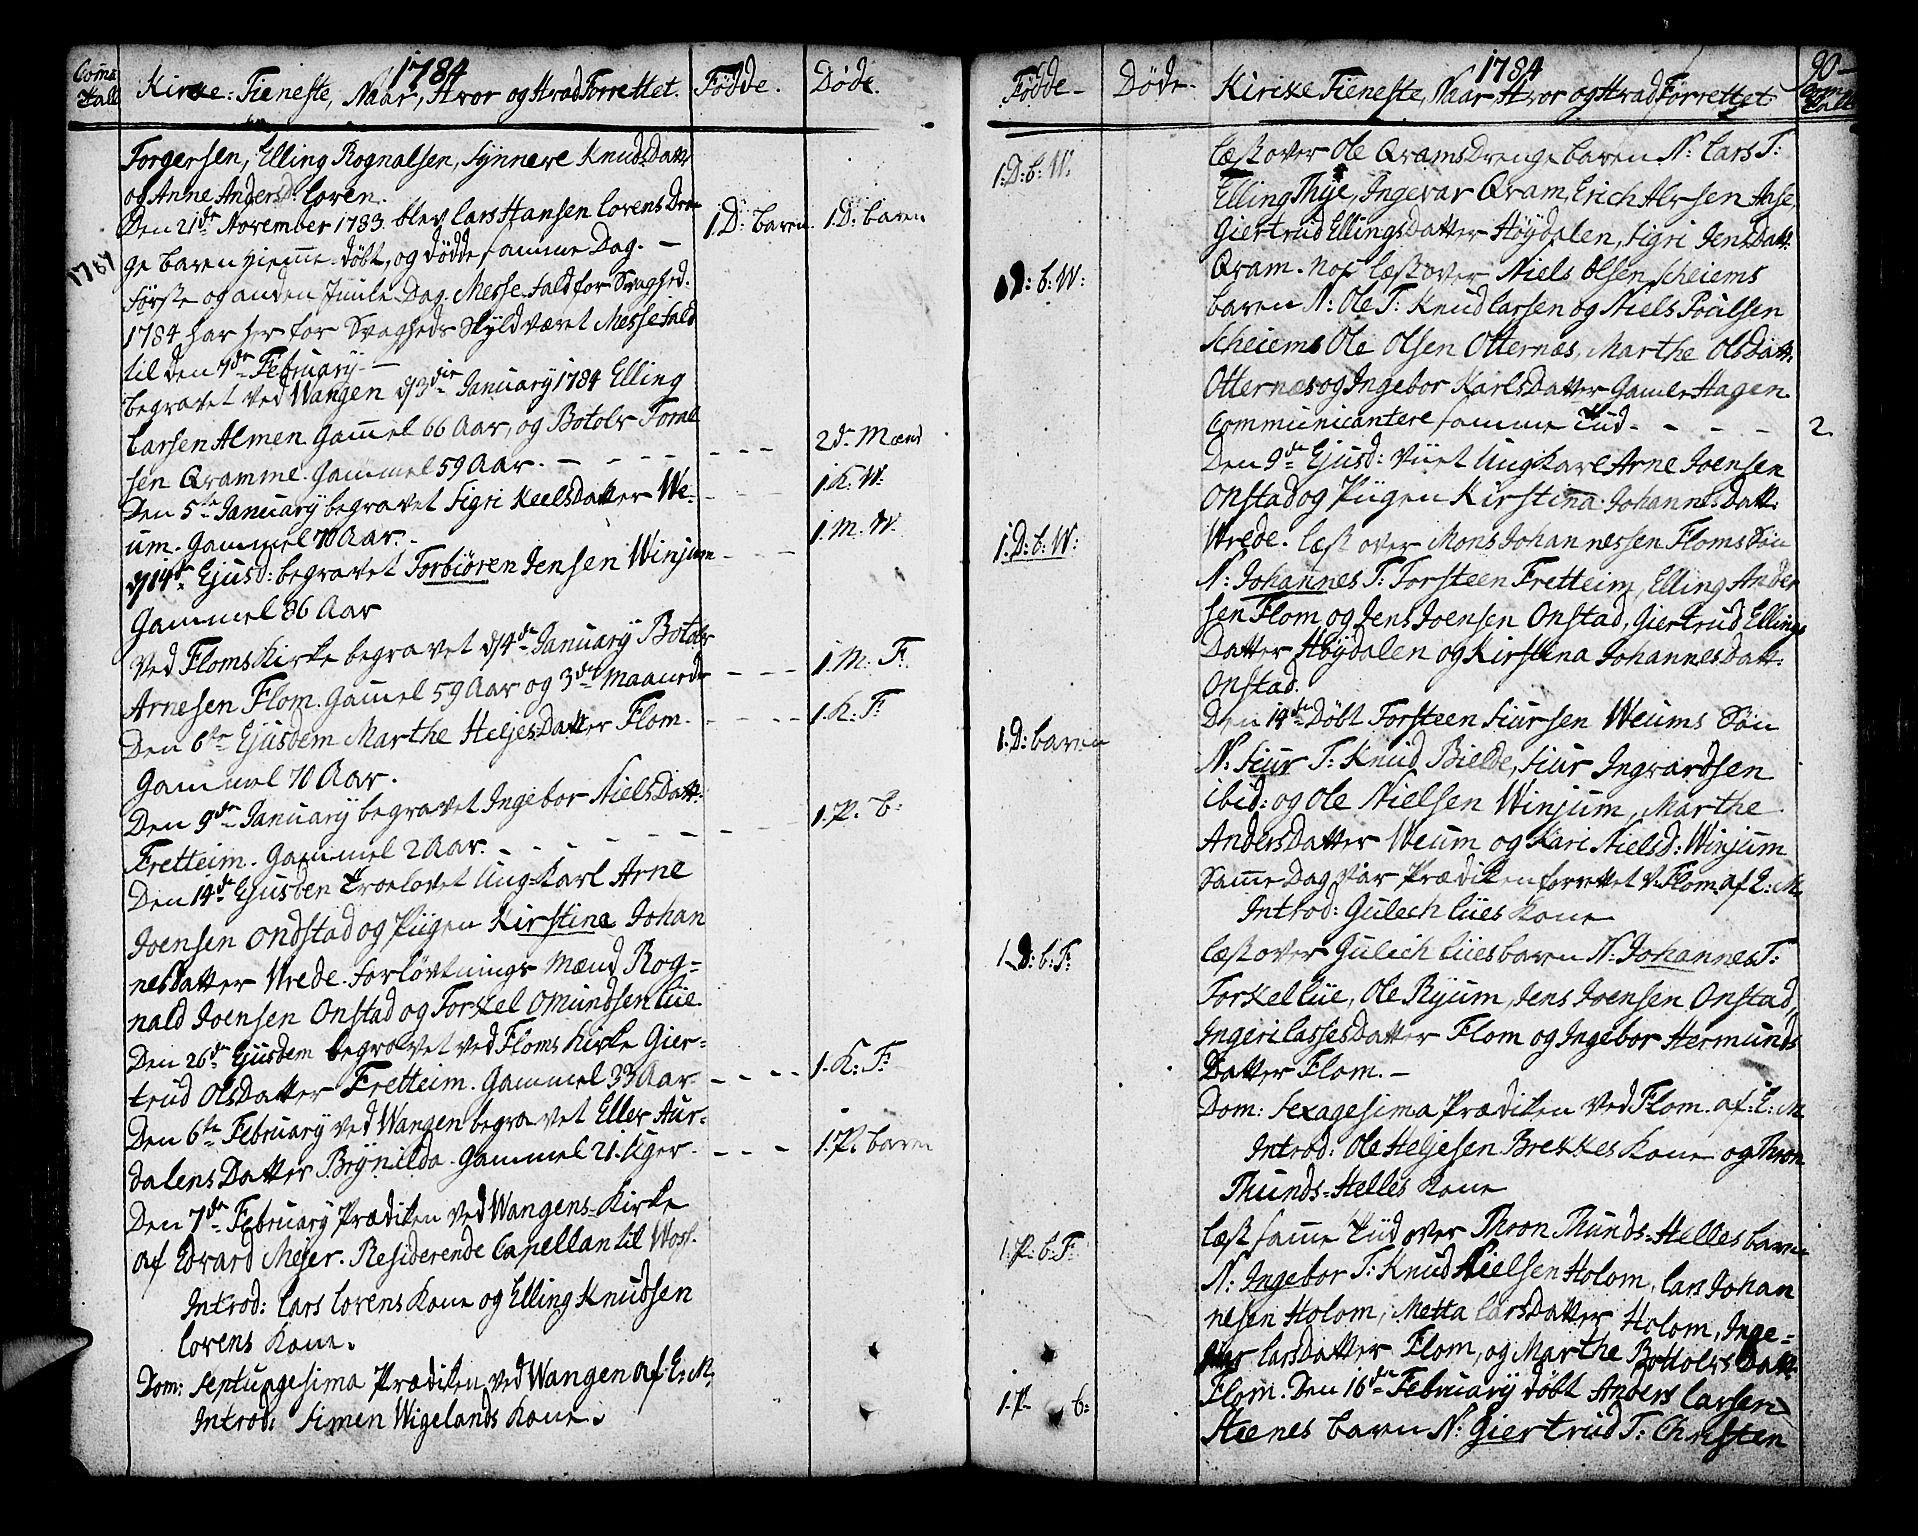 Coma
Tall
1784
Kirke: Tieneste, Naar, Hvor og Hvad Forrettet.
Fødde.
Døde.
Torgersen, Elling Rognalsen, Synneve KnudsDatt
og Anne Andersd. Loren.
Den 21de November 1783 blev Lars Hansen Lorens Dren
1. D: baren 1. D: baren
ge baren hiemme-døbt, og døde samme Dag. —
1784
Første og anden Juule-Dag. Messe-fald for Svaghed.
1784 har her for Svagheds Skyld været Messefald
til den 7de February. —
begravet ved Wangen d. 3die January 1784 Elling
Larsen Almen. Gammel 66 Aar, og Botolv Tomes
sen Qvamme. Gammel 59 Aar. — 2de Mænd
Den 5te January begravet Sigri KeelsDatter We-
1. K. W.
um. Gammel 70 Aar.
d. 14de Ejusd: begravet Torbiøren Jensen Winjum
1. M. W.
Gammel 86 Aar
Ved Floms Kirke begravet d. 4de January Botolv
Arnesen Flom. Gammel 59 Aar og 3de Maaneder
1. M. F.
Den 6te Ejusdem Marthe HeljesDatter Flom.
1. K: F:
Gammel 70 Aar.
Den 9de January begravet Ingebor NielsDatt:
1. P. b:
Fretteim. Gammel 2 Aar.
Den 14de Ejusdem Troelovet Ung-Karl Arne
Joensen Ondstad og Piigen Kirstina Johan
nesDatter Wrede. Forløvtnings Mænd Rog-
nald Joensen Onstad og Torkel Omundsen Lüe
Den 26de Ejusdem begravet ved Floms Kirke Gier-
trud OlsDatter Fretteim. Gammel 33 Aar
1. K: F:
Den 6te February ved Wangen begravet Eller Aur-
dalens Datter Brynilda. Gammel 21. Uger
1. P. baren
Den 7de February Prædiken ved Wangens-Kirke
af Edvard Meyer. Residerende Capellan til Woss.
Introd: Lars Lorens Kone og Elling Knudsen
Lorens Kone.
Dom: Septuagesima Prædiken ved Wangen af E: M:
Introd: Simen Wigelands Kone.
Fødde
Døde
1784
Kirke Tieneste, Naar Hvor og Hvad Forrettet
90
Com
Tall
1: D: b: W.
Læst over Ole Qvams Drengebaren N: Lars T:
Elling Thye, Ingevar Qvam, Erich Alvsen Aase,
Giertrud Ellingsdatter Høydalen, Sigri JensDatt
1 D: b: W:
Qvam. Nok læst over Niels Olsen Scheiems
baren N: Ole T: Knud Larsen og Niels Poulsen
Scheiem Ole Olsen Otternæs, Marthe OlsDatt:
Otternæs og Ingebor KarlsDatter Gamle Hagen
Communicantere samme Tiid. — 2.
Den 9de Ejusd: Viiet Ungkarl Arne Joensen
Onstad og Piigen Kirstina JohannesDatt:
1. D: b: W:
Wrede. Læst over Mons Johannessen Floms Søn
N: Johannes T: Torsteen Fretteim, Elling Ander
sen Flom og Jens Joensen Onstad, Giertrud Ellings
Datter Høydalen og Kirstina JohannesDatt:
Onstad.
1. D: baren
Den 14de Døbt Torsteen Siursen Weums Søn
N: Siur T: Knud Bielde, Siur Ingvardsen
ibid: og Ole Nielsen Winjum, Marthe
AndersDatter Weum og Kari Nielsd: Winjum
Samme Dag var Prædiken forrettet v. Flom af E: M.
Introd: Gulech Lües Kone
1 D: b: F:
Læst over Gulech Lües baren N: Johannes T:
Torkel Lüe, Ole Ryum, Jens Joensen Onstad,
Ingeri LassesDatter Flom og Ingebor Hermunds
Datter Flom. —
Dom: Sexagesima Prædiken ved Flom. af: E: M
Introd: Ole Heljesen Brekkes Kone og Thron
Thunds-Helles Kone
Læst samme Tiid over Thron Thunds-Helles baren
1. P: b: F:
N: Ingebor T: Knud Nielsen Holom, Lars Johan
nesen Holom, Metta LarsDatter Holom, Inge-
bor LarsDatter Flom, og Marthe BottolvsDatt:
1. P. b:
Flom. Den 16de February døbt Anders Larsen
Steenes baren N: Giertrud T: Christen